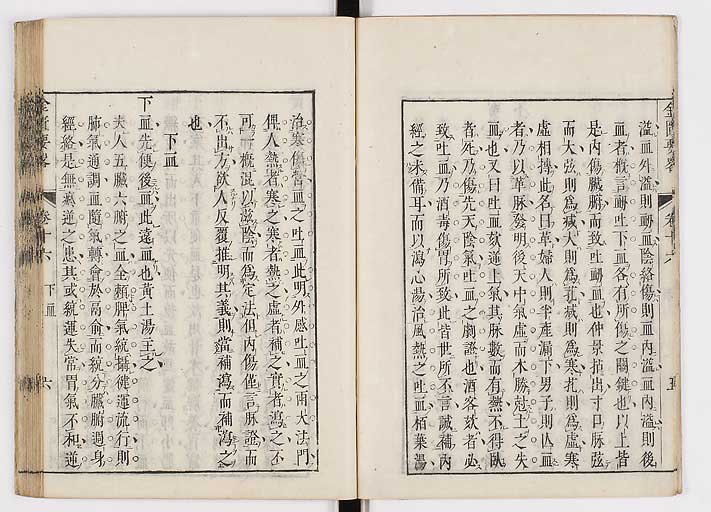 溢血外溢則衄血陰絡傷則血內溢血內溢則後
血者槪言衄吐下血各有所傷之關鍵也以上皆
是內傷臟腑而致吐衄血也仲景拈出寸口脉弦
而大弦則爲減大則爲芤減則爲寒芤則爲虛寒
虛相摶此名曰革婦人則半產漏下男子則亾血
者乃以革脉發明後天中氣虛而木勝尅土之失
血也又曰吐血欬逆上氣其脉數而有熱不得臥
者死乃傷先天陰氣吐血之劇證也酒客欬者必
致吐血乃酒毒傷胃所致此皆世所不言誠補內
經之未備耳而以瀉心湯治風熱之吐血栢葉湯
金匱要畧
卷十六
治寒傷營血之吐血此明外感吐血之兩大法門
俾人熱者寒之寒者熱之虛者補之實者瀉之不
可一槪混以滋陰而爲定法但內傷僅言脉證而
不出方欲人反覆推明其義則當補瀉而補瀉之
也
下血
下血先便後血此遠血也黃土湯主之
夫人五臟六腑之血全賴脾氣統攝從運流行則
肺氣通調血隨氣轉會於膈兪而統分臟腑週身
經絡是無氣逆之患其或統運失常胃氣不和逆
金匱要畧
卷十六
下血
六